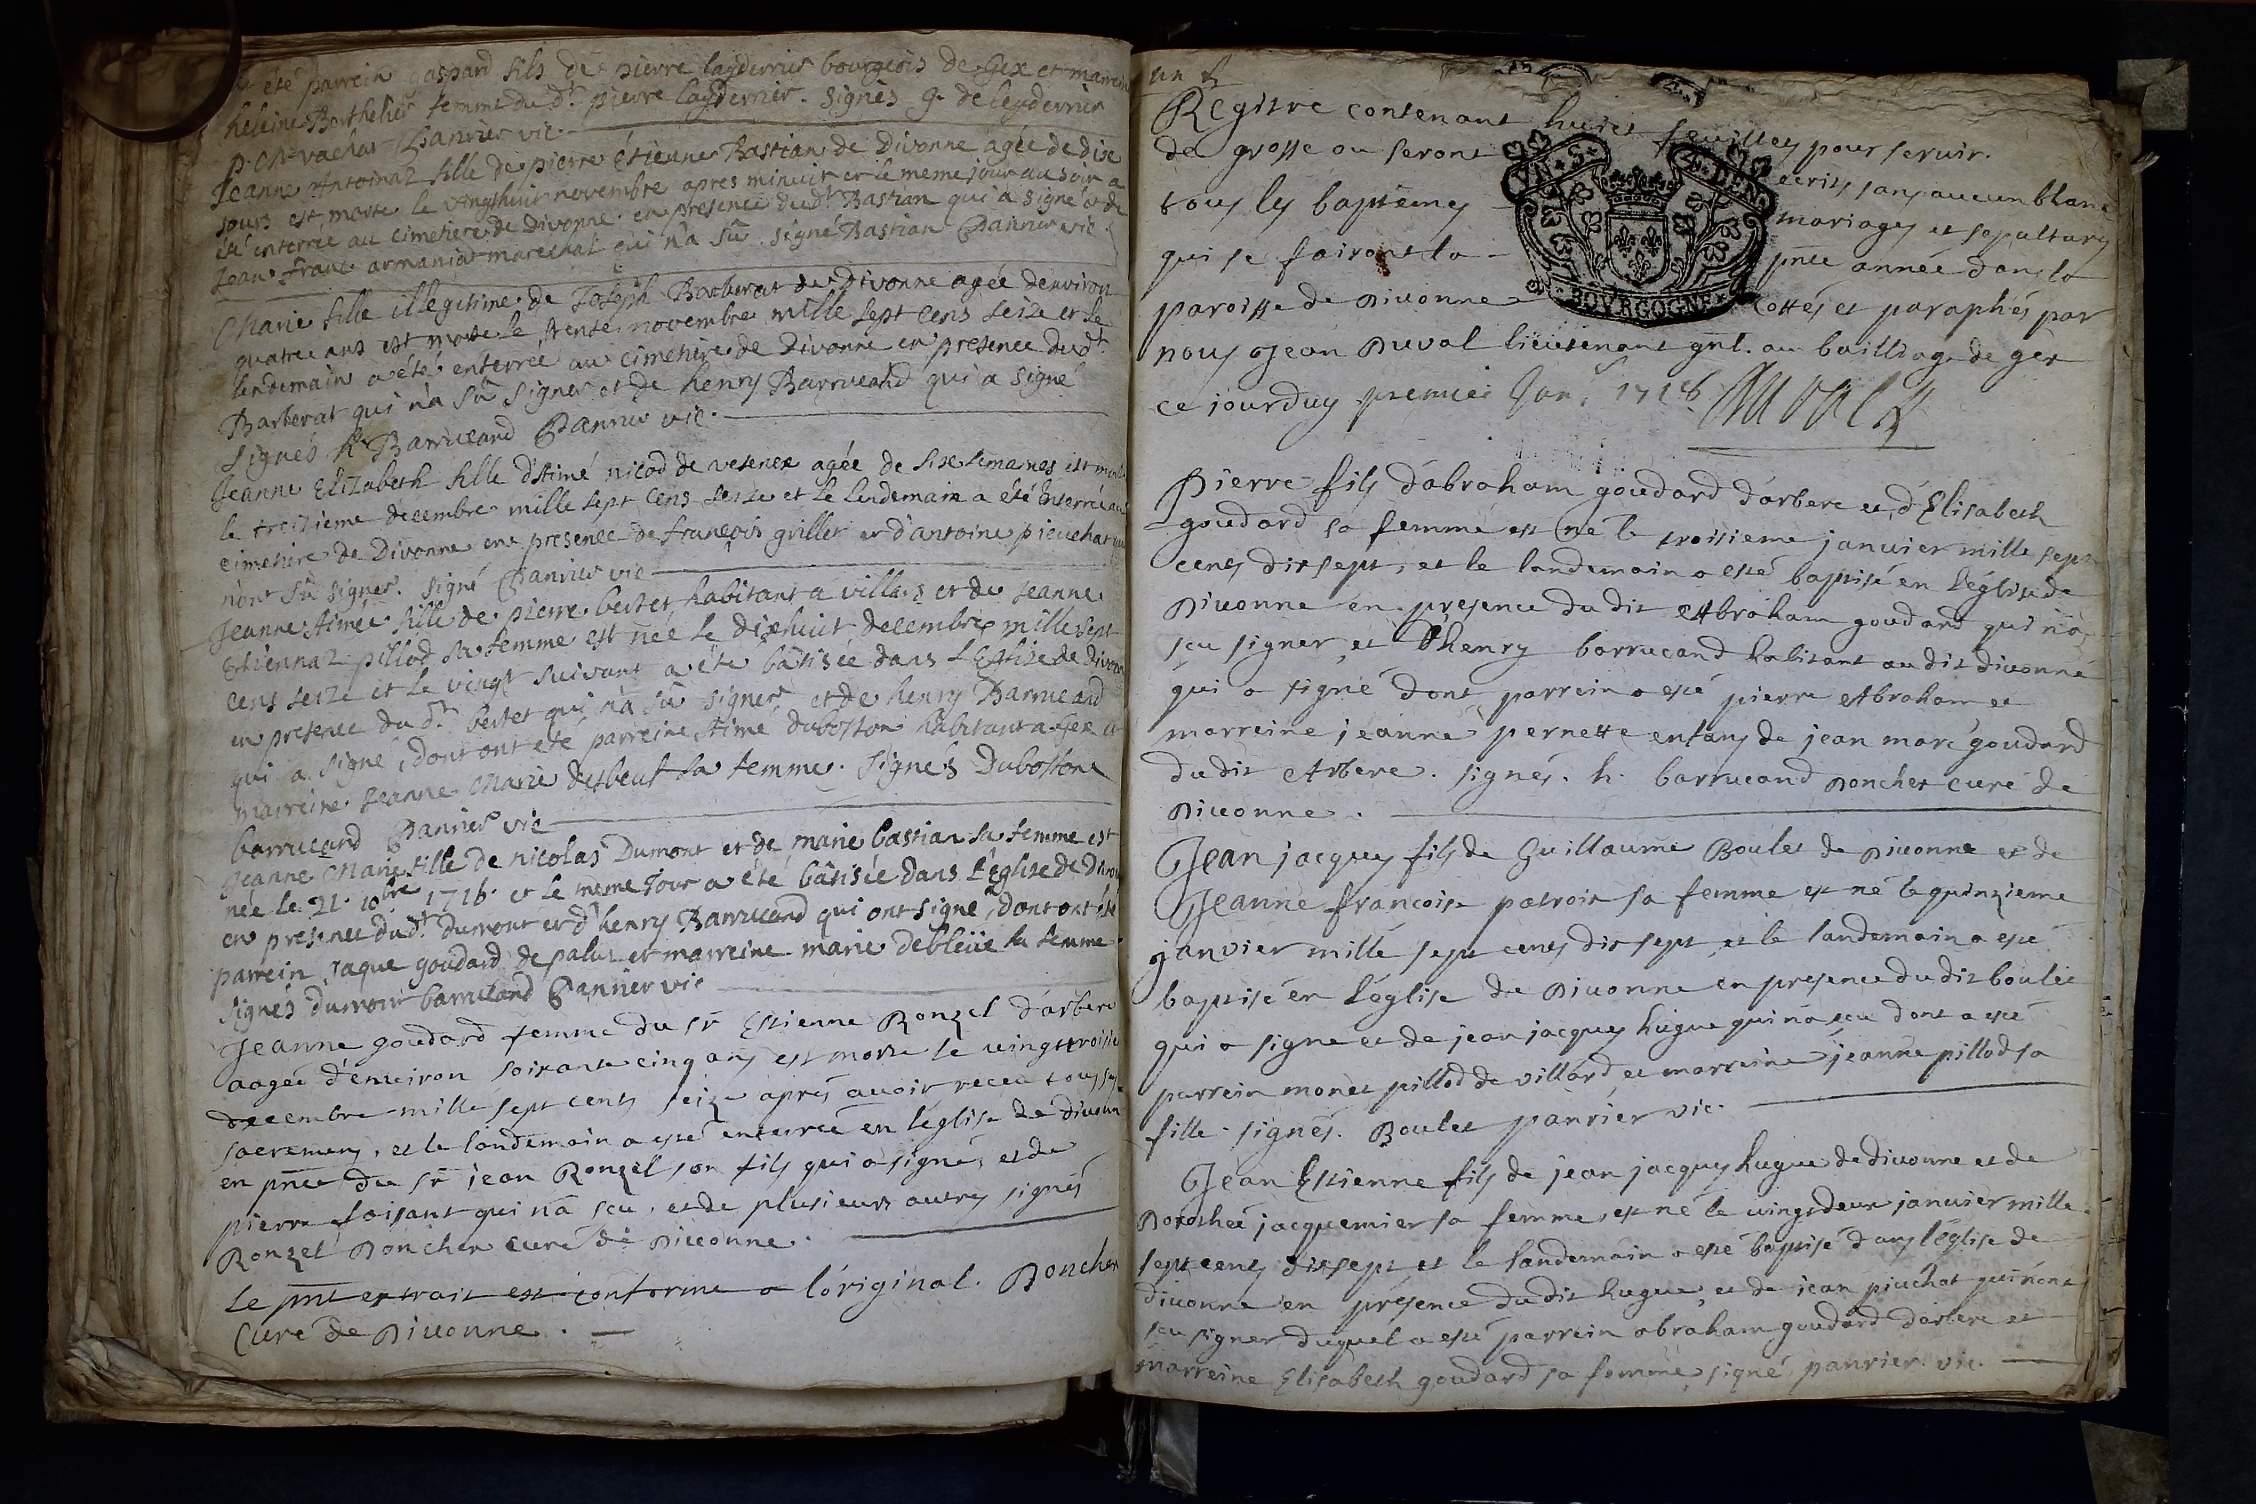 été parrein gaspard fils de pierre layderrier bourgeois de Gex et marreine
heleine Barthelier femme du dt pierre layderrier. signés g. de leyderrier
Panrier vic.
Jeanne Antoinaz fille de pierre étienne Bastian de Divonne agée de dix
jours est morte le vingthuit novembre apres minuit et le meme jour au soir a
été enterrée au cimetiere de Divonne en presence dudt Bastian qui a signé et de
Jean franc armaniat marechal qui n'a sû. signé Bastian Panrier vic
Marie fille illegitime de Joseph Barberat de Divonne agée denviron
quatre ans est morte le trente novembre mille sept cens seize et le
lendemain a été enterrée au cimetiere de Divonne en presence dudt
Barberat qui n'a sû signer et de henry Barrucand qui a signé
Signés h Barrucand Panrier vic.
Jeanne Elizabeth fille d'Aimé nicod de vesenex agée de six semaines est morte
le treizieme decembre mille sept cens seize et le lendemain a été enterrée au
cimetiere de Divonne en presence de françois grillet et d'antoine pieuchat qui
n'ont sû signer. signé Panrier vic
Jeanne Aimée fille de pierre bertet habitant a villars et de Jeanne
Etiennaz pillod sa femme est née le dixhuit decembre mille sept
cens seize et le vingt suivant a été bâtisée dans l'Eglise de Divonne
en presence du dt bertet qui n'a sû signer et de henry Barrucand
qui a signé, dont ont été parreine Aimé duboston habitant a Gex et
marreine Jeanne Marie desbeuf sa femme. Signés Duboston
barrucand Panrier vic
Jeanne Marie fille de nicolas Dumont et de marie bastian sa femme est
née le 21. 10bre 1716. et le meme jour a été bâtisée dans l'Eglise de Divonne
en presence dudt Dumont et d'henry Barrucand qui ont signé, dont ont été
parrein Jaque goudard de palus et marreine marie debleüe sa femme.
signés dumont barrucand Panrier vic
Jeanne goudard femme du sr Estienne Ronzel d'arbere
aagée d'environ soixante cinq ans est morte le vingttroisie
decembre mille sept cents seize aprés avoir receu tous ses
sacremens, et le landemain a esté enterrée en l'église de divonne
en pnce du sr jean Ronzel son fils qui a signé, et de
pierre foisant qui n'a sçu, et de plusieurs autres signés
Ronzel Poncher curé de Divonne.
Le pnt extrait est conforme a l'original. Poncher
Curé de Divonne.
un
Registre contenant huict feuilles pour servir
de grosse ou seront ecrits sans aucun blanc
tous les baptemes mariages et sepultures
qui se fairont la pnte année dans la
paroisse de Divonne Cottés et paraphés par
nous Jean Duval lieutenant gnl. au bailliage de gex
ce jourduy premier Janr 1718 Duval
UN S 4 DEN
BOURGOGNE
Pierre fils d'abraham goudard d'arbere et d'Elisabeth
goudard sa femme est né le troisieme janvier mille sept
cens dixsept, et le landemain a esté baptisé en l'église de
Divonne en presence du dit Abraham goudard qui n'a
sçu signer, et d'henry barrucand habitant au dit divonne
qui a signé dont parrein a esté pierre Abraham et
marreine jeanne pernette enfans de jean marc goudard
du dit Arbere. signés. h. barrucand Poncher curé de
Divonne.
Jean jacques fils de Guillaume Boulet de Divonne et de
Jeanne francoise patroix sa femme est né le quinzieme
janvier mille sept cens dix sept, et le landemain a esté
baptisé en l'église de Divonne en presence du dit boulet
qui a signé et de jean jacques hugue qui n'a sçu dont a esté
parrein monet pillod de villard et marreine jeanne pillod sa
fille. signés. Boulet panrier vic.
Jean Estienne fils de jean jacques hugue de divonne et de
Dorothée jacquemier sa femme, est né le vingtdeux janvier mille
sept cens dixsept et le landemain a esté baptisé dans l'église de
divonne en présence du dit hugue, et de jean piuchat qui n'ont
sçu signer duquel a esté parrein abraham goudard d'arbere et
marreine Elisabeth goudard sa femme, signé panrier. vic.